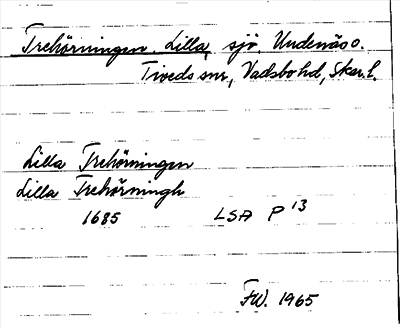 Trehörningen, Lilla, sjö. Undenäs o.
Tiveds snr, Vadsbo hd, Skar. l.
Lilla Trehörningen
Lilla Trehörningh
1685 LSA P 13
FW. 1965